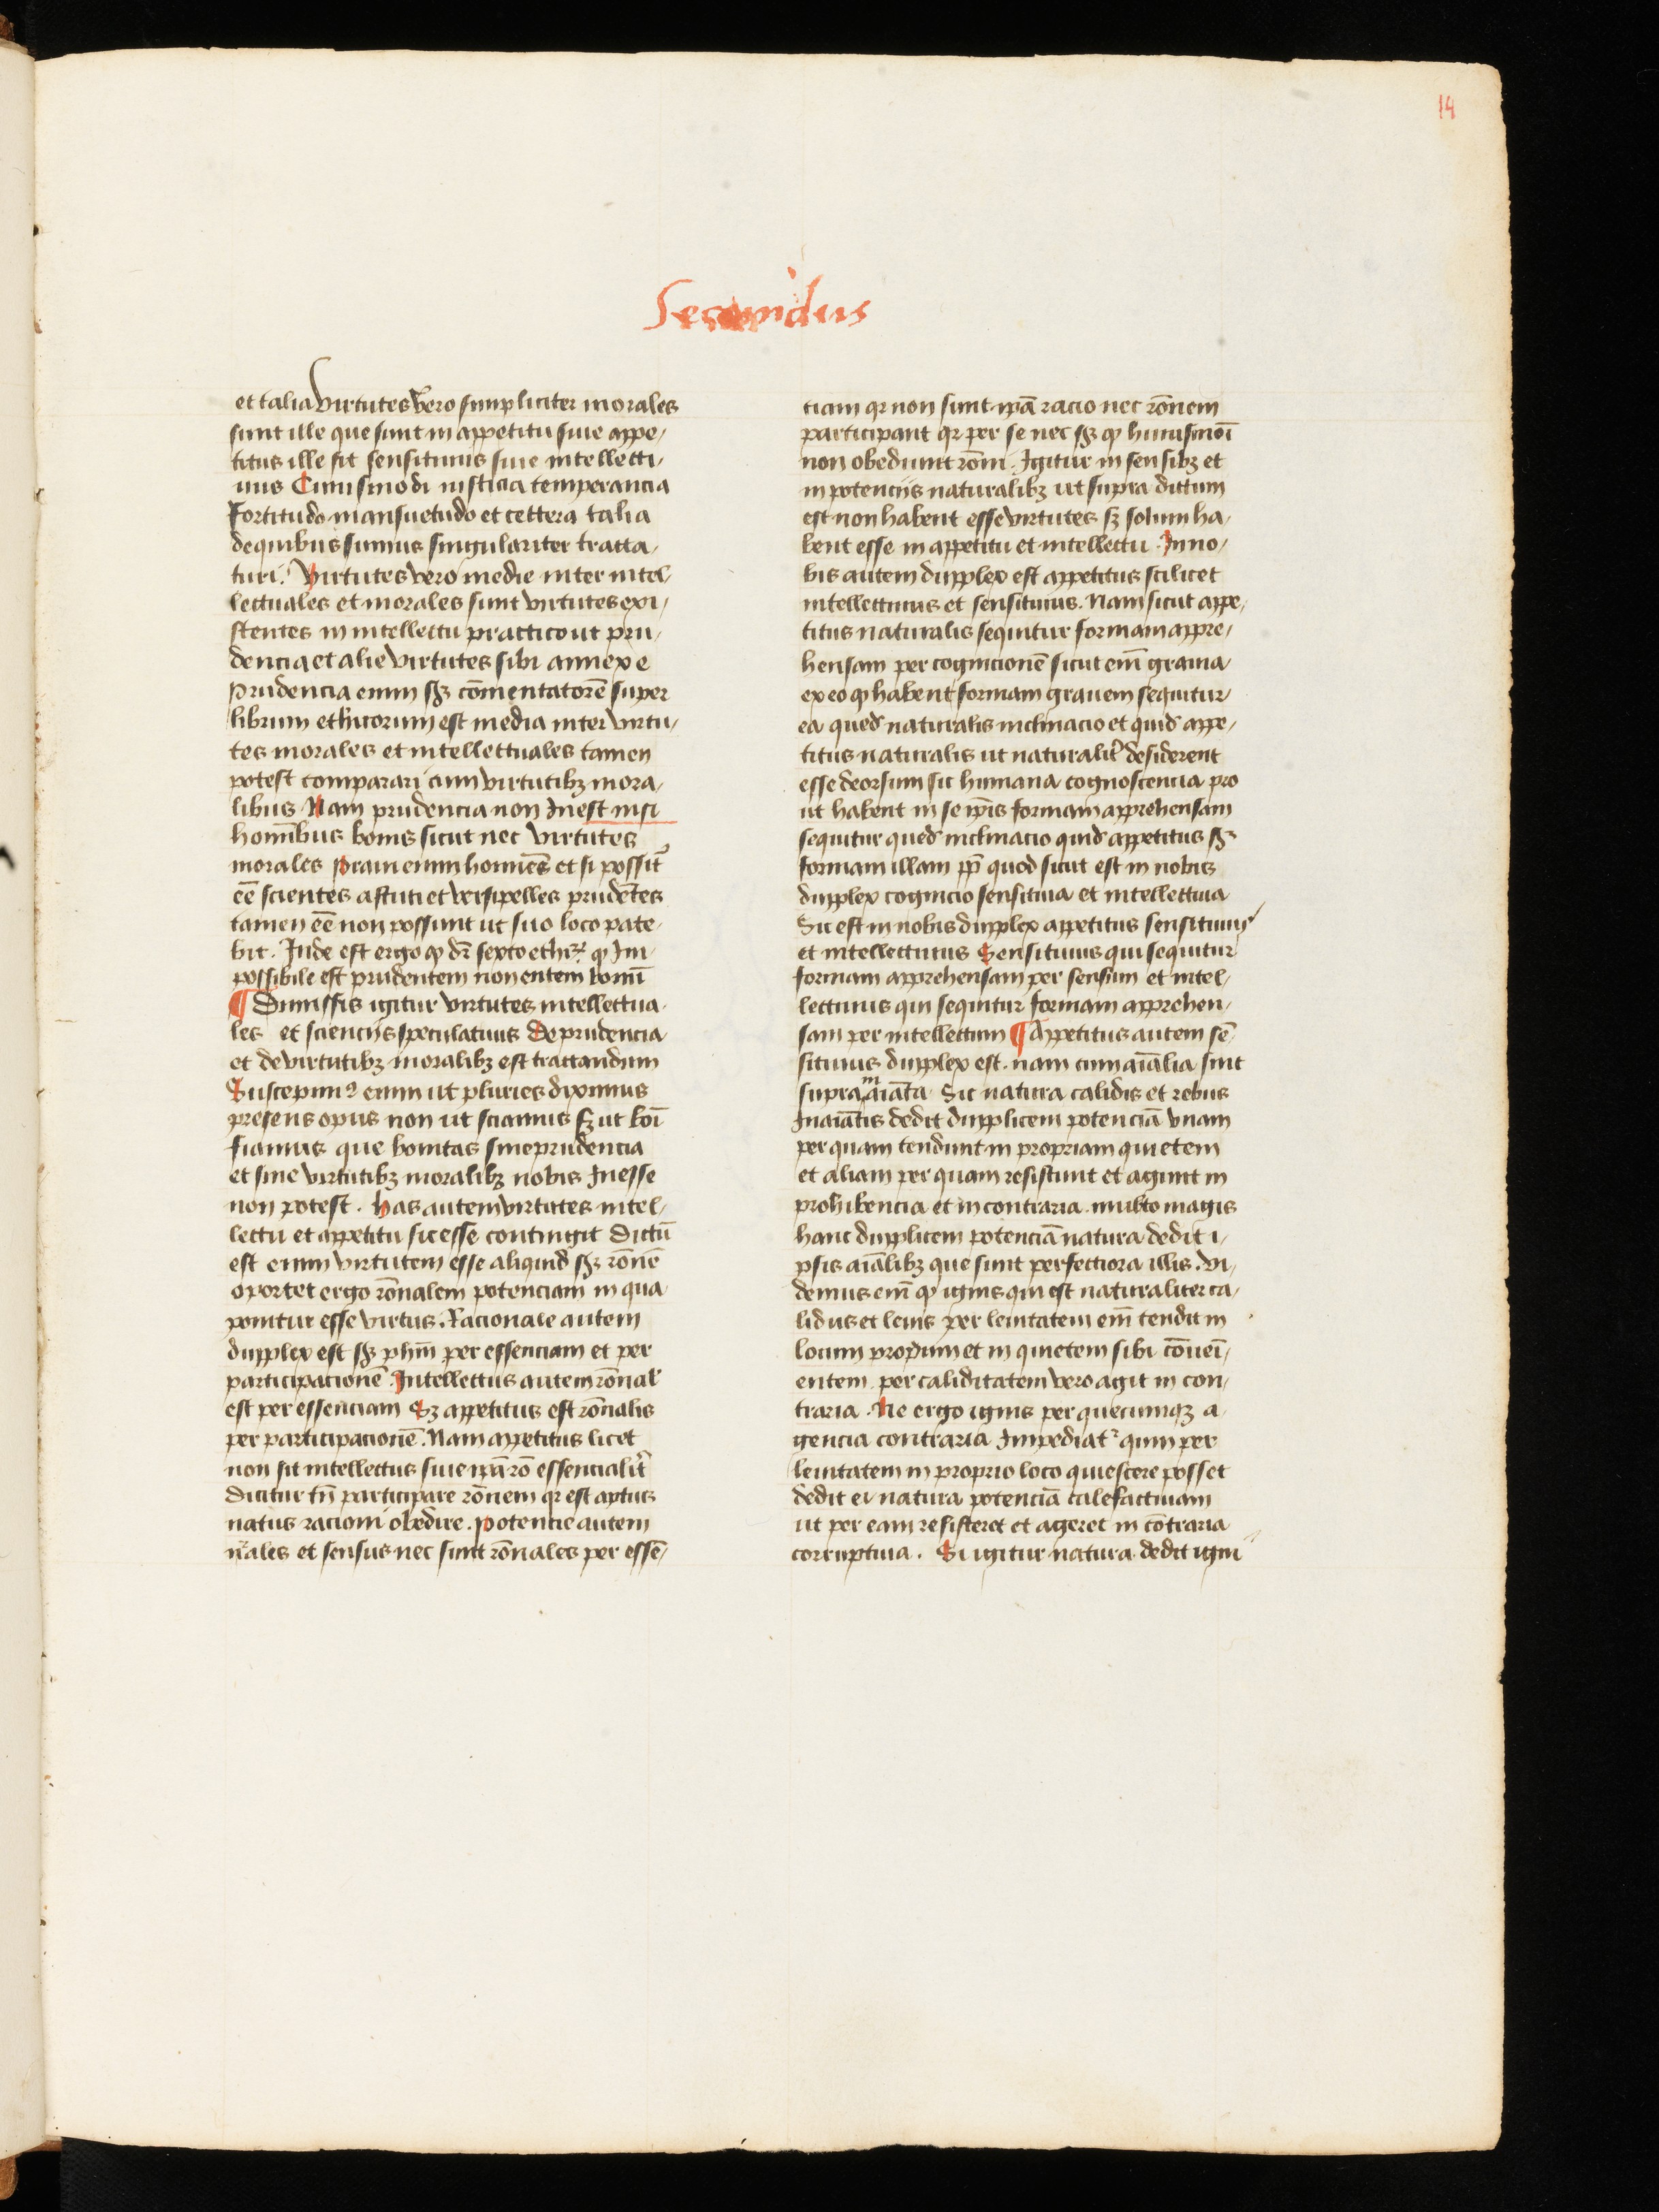 14
Secundus
et talia Virtutes vero simpliciter morales
sunt ille que sunt in appetitu siue appe/
titus ille sit sensitiuus siue intellecti/
uus Cuiusmodi iusticia temperancia
Fortitudo mansuetudo et cettera talia
de quibus sumus singulariter tracta/
turi. Virtutes vero medie inter intel/
lectuales et morales sunt virtutes exi/
stentes in intellectu practico ut pru/
dencia et alie virtutes sibi annexe
Prudencia enim sꝫ cōmentatorē super
librum ethicorum est media inter virtu/
tes morales et intellectuales tamen
potest comparari cum virtutibꝫ mora/
libus Nam prudencia non Inest nisi
hominibus bonis sicut nec virtutes
morales praui enim homīes et si possīt
eē scientes astuti et versipelles prudētes
tamen eē non possunt ut suo loco pate/
bit. Inde est ergo ꝙ dr̄ sexto ethiꝝ ꝙ Im/
possibile est prudentem non entem bonū
¶ Dimissis igitur virtutes intellectua/
les et sciencijs speculatiuis De prudencia
et de virtutibꝫ moralibꝫ est tractandum
Suscepimꝰ enim ut pluries diximus
presens opus non ut sciamus sꝫ ut boī
fiamus que bonitas sine prudencia
et sine virtutibꝫ moralibꝫ nobis Inesse
non potest. has autem virtutes intel/
lectu et appetitu sic esse contingit Dictū
est enim virtutem esse aliquid sꝫ rōnē
oportet ergo rōnalem potenciam in qua
ponitur esse virtus. Racionale autem
dupplex est sꝫ phm̄ per essenciam et per
participacionē. Intellectus autem rōnal'
est per essenciam Sꝫ appetitus est rōnalis
per participacionē. Nam appetitus licet
non sit intellectus siue ipā rō essencialit͛
Dicitur tn̄ participare rōnem qr est aptus
natus racioni obedire. potencie autem
nr̄ales et sensus nec sunt rōnales per essē/
ciam qr non sunt ipā racio nec rōnem
participant qr per se nec sꝫ ꝙ huiusmōi
non obediunt rōni. Igitur in sensibꝫ et
in potencijs naturalibꝫ ut supra dictum
est non habent esse virtutes sꝫ solum ha/
bent esse in appetitu et intellectu. In no/
bis autem dupplex est appetitus scilicet
intellectiuus et sensitiuus. Nam sicut appe/
titus naturalis sequitur formam appre/
hensam per cognicionē sicut em̄ grauia
ex eo ꝙ habent formam grauem sequitur
ea quedꝫ naturalis inclinacio et quidꝫ appe/
titus naturalis ut naturalit͛ desiderent
esse deorsum sic humana cognoscencia pro
ut habent in se ip̄is formam apprehensam
sequitur quedꝫ inclinacio quidꝫ appetitus sꝫ
formam illam pp̄ quod sicut est in nobis
dupplex cognicio sensitiua et intellectiua
Sic est in nobis dupplex appetitus sensitiuus
et intellectiuus Sensitiuus qui sequitur
formam apprehensam per sensum et intel/
lectiuus qui sequitur formam apprehen/
sam per intellectum ¶ Appetitus autem sē
sitiuus dupplex est. nam cum aīalia sint
supra inaīata Sic natura calidis et rebus
Inaīatis dedit dupplicem potenciā vnam
per quam tendunt in propriam quietem
et aliam per quam resistunt et agunt in
prohibencia et in contraria. multo magis
hanc dupplicem potenciā natura dedit i/
psis aīalibꝫ que sunt perfectiora illis. vi/
demus em̄ ꝙ ignis qui est naturaliter ca/
lidus et leuis per leuitatem em̄ tendit in
locum propium et in quietem sibi cōueī/
entem per caliditatem vero agit in con/
traria. Ne ergo ignis per quecumqꝫ a/
gencia contraria Impediat͛ quin per
leuitatem in proprio loco quiescere posset
dedit ei natura potenciā calefactiuam
ut per eam resisteret et ageret in cōtraria
corruptiua. Si igitur natura dedit igni